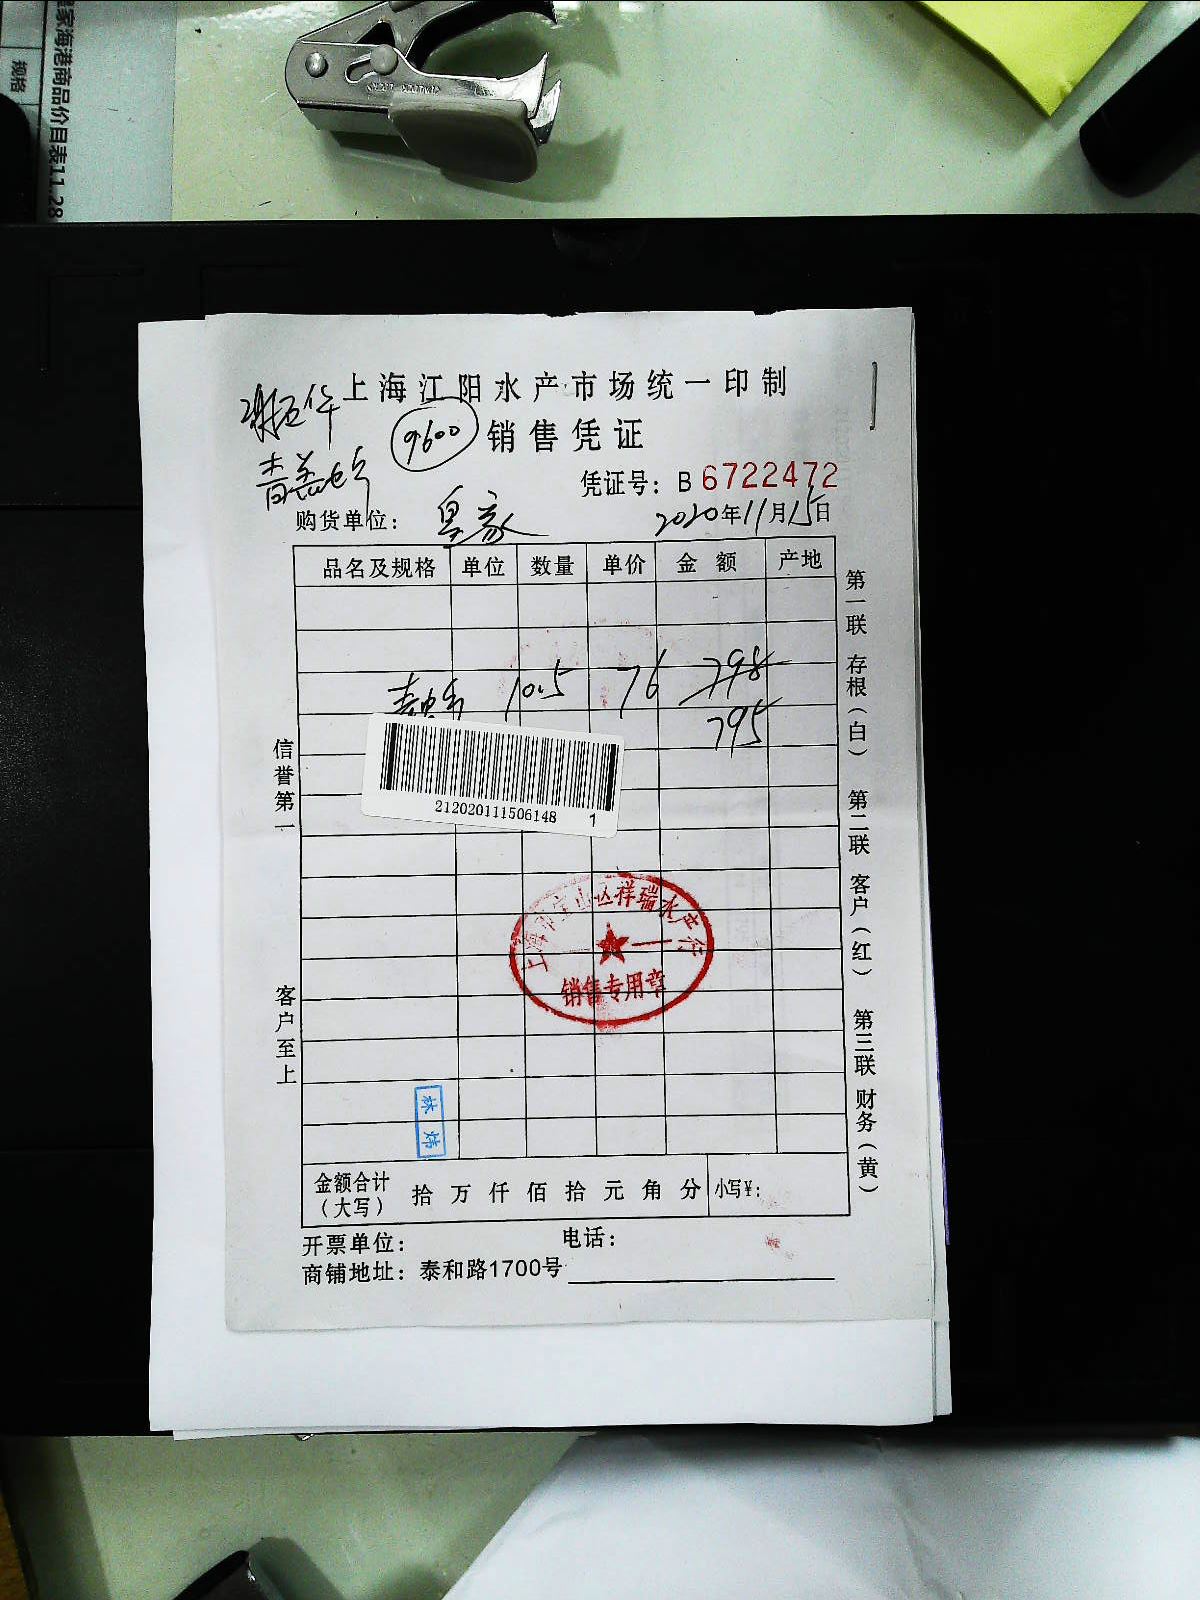 皇家海港商品价目表11.28
规格
上海江阳水产市场统一印制
9600
销售凭证
凭证号：B 6722472
购货单位：皇家
2020年11月15日
品名及规格 单位 数量 单价 金额 产地
10.5 76 798
795
212020111506148 1
上海市宝山区祥瑞水产行
销售专用章
林炜
金额合计（大写） 拾 万 仟 佰 拾 元 角 分 小写¥：
开票单位： 电话：
商铺地址：泰和路1700号
信誉第一
客户至上
第一联 存根（白） 第二联 客户（红） 第三联 财务（黄）